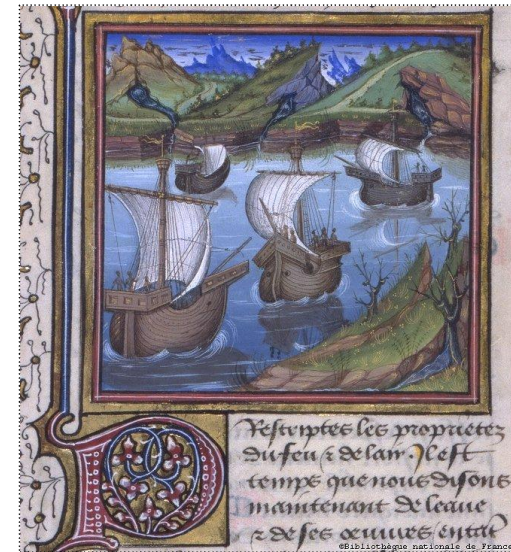 Restriptes les proprietez
du feu & de lair Il est
temps que nous disons
maintenant de leaue
& de ses oeuvres en tãt
©Bibliothèque nationale de France